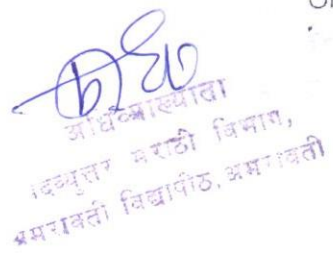 अधिव्याख्याता
पदव्युत्तर मराठी विभाग,
अमरावती विद्यापीठ, अमरावती